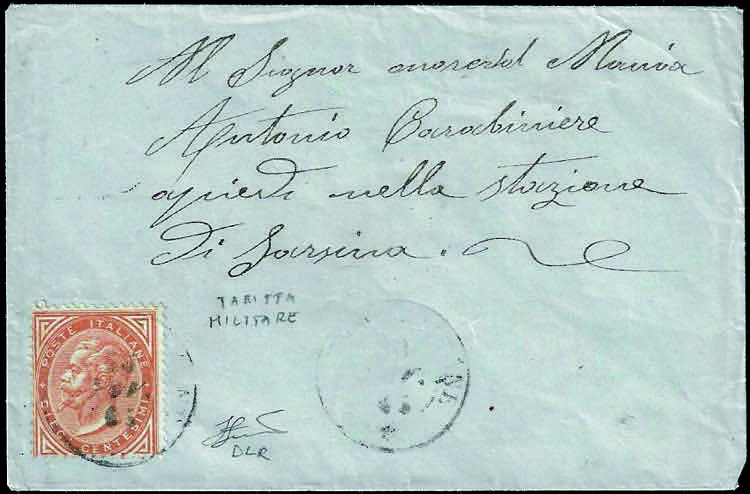 Al Signor onorevol Manùa
Antonio Carabiniere
apiedi nella stazione
di Sarsina.
TARIFFA
MILITARE
POSTE ITALIANE
DIECI CENTESIMI
NE
DLR